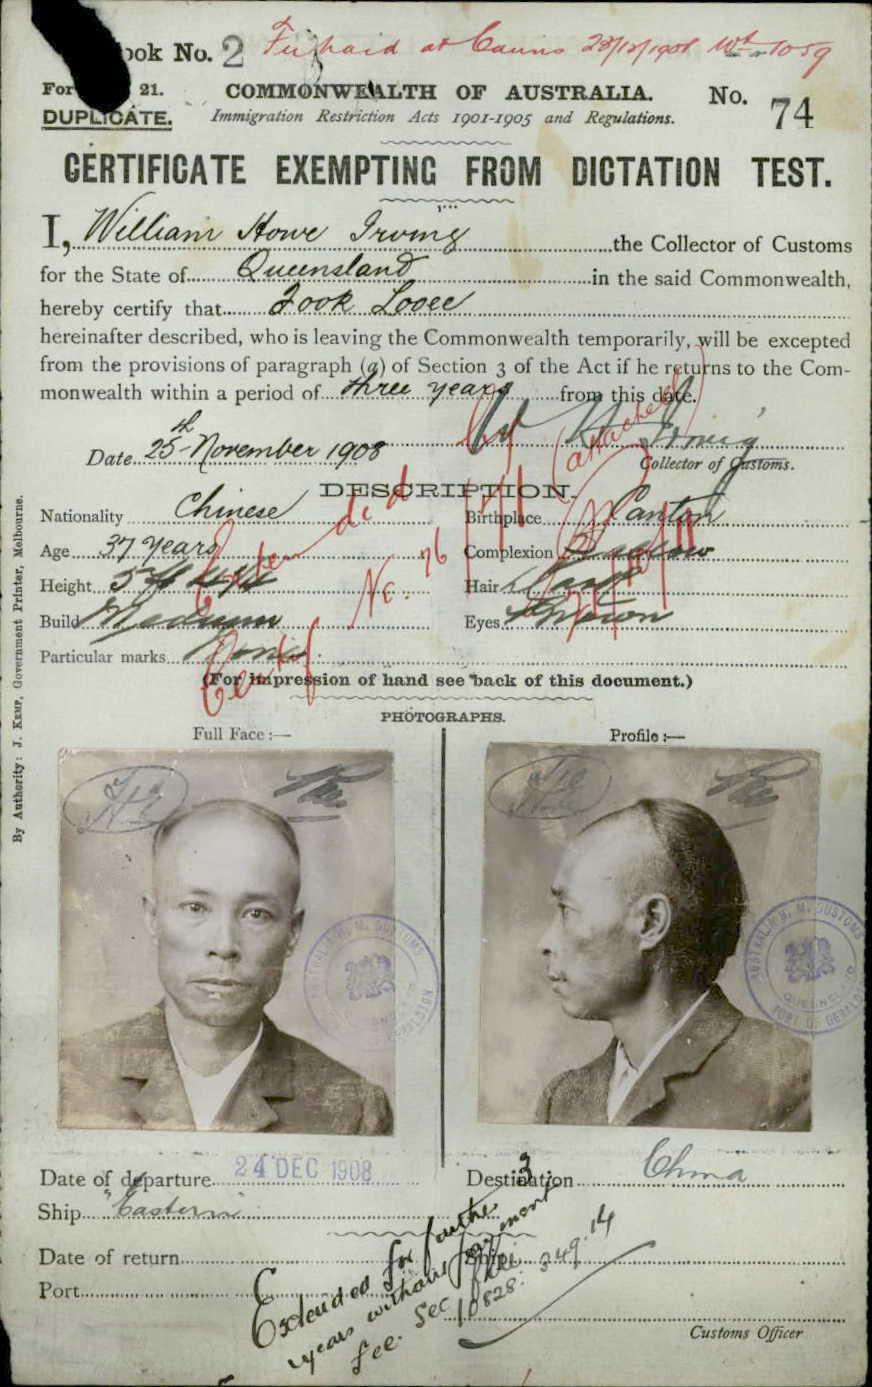 ook No. 2 at Cairns 23/12/1908
For 21. COMMONWEALTH OF AUSTRALIA. No. 74
DUPLICATE. Immigration Restriction Acts 1901-1905 and Regulations.
CERTIFICATE EXEMPTING FROM DICTATION TEST.
I, William Howe Irving the Collector of Customs
for the State of Queensland in the said Commonwealth,
hereby certify that Fook Looee
hereinafter described, who is leaving the Commonwealth temporarily, will be excepted
from the provisions of paragraph (a) of Section 3 of the Act if he returns to the Com-
monwealth within a period of three years from this date.
Date 25th November 1908
(attached)
Collector of Customs.
DESCRIPTION.
Nationality Chinese Birthplace Canton
Age 37 years Complexion Sallow
Height Hair Dark
Build Medium Eyes Brown
Particular marks None
Extended
Certif No. 76
(For impression of hand see back of this document.)
PHOTOGRAPHS.
Full Face :— Profile :—
AUSTRALIA H. M. CUSTOMS
QUEENSLAND
PORT OF GERALDTON
Date of departure 24 DEC 1908 Destination China
Ship "Eastern"
Date of return Ship
Port
Extended for further 3
years without payment
fee. See file
10828. 349.14
Customs Officer
By Authority: J. Kemp, Government Printer, Melbourne.